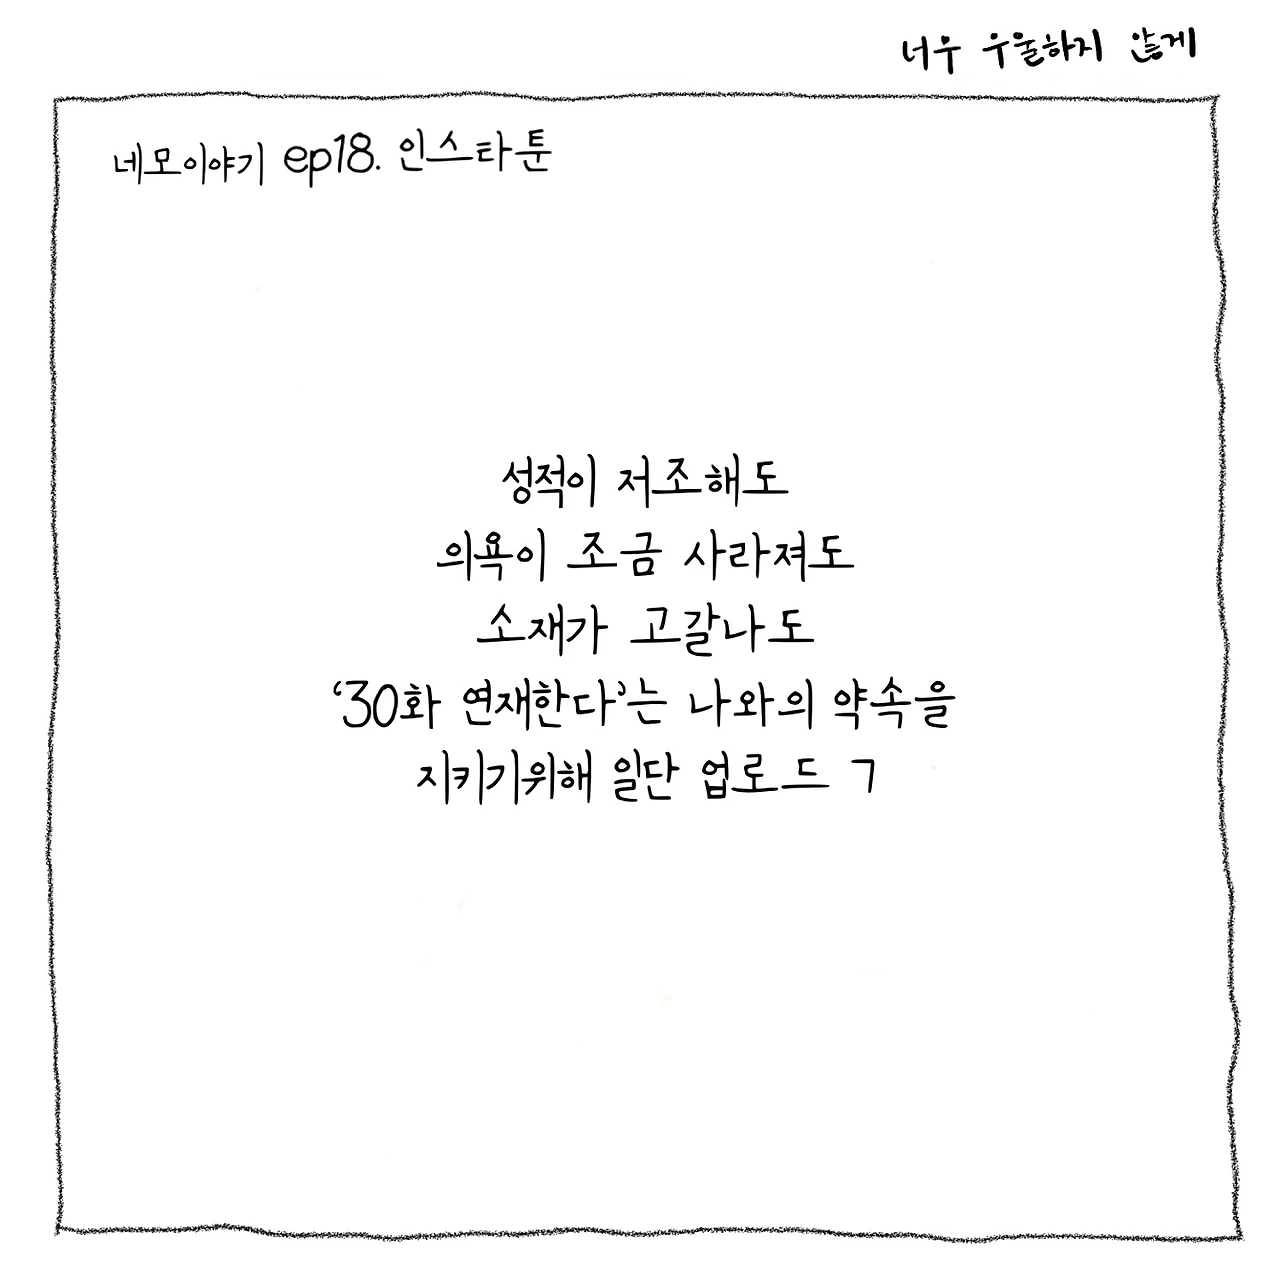 너우 우울하지 않게
네모이야기 ep18. 인스타툰
성적이 저조해도
의욕이 조금 사라져도
소재가 고갈나도
‘30화 연재한다’는 나와의 약속을
지키기위해 일단 업로드 ㄱ